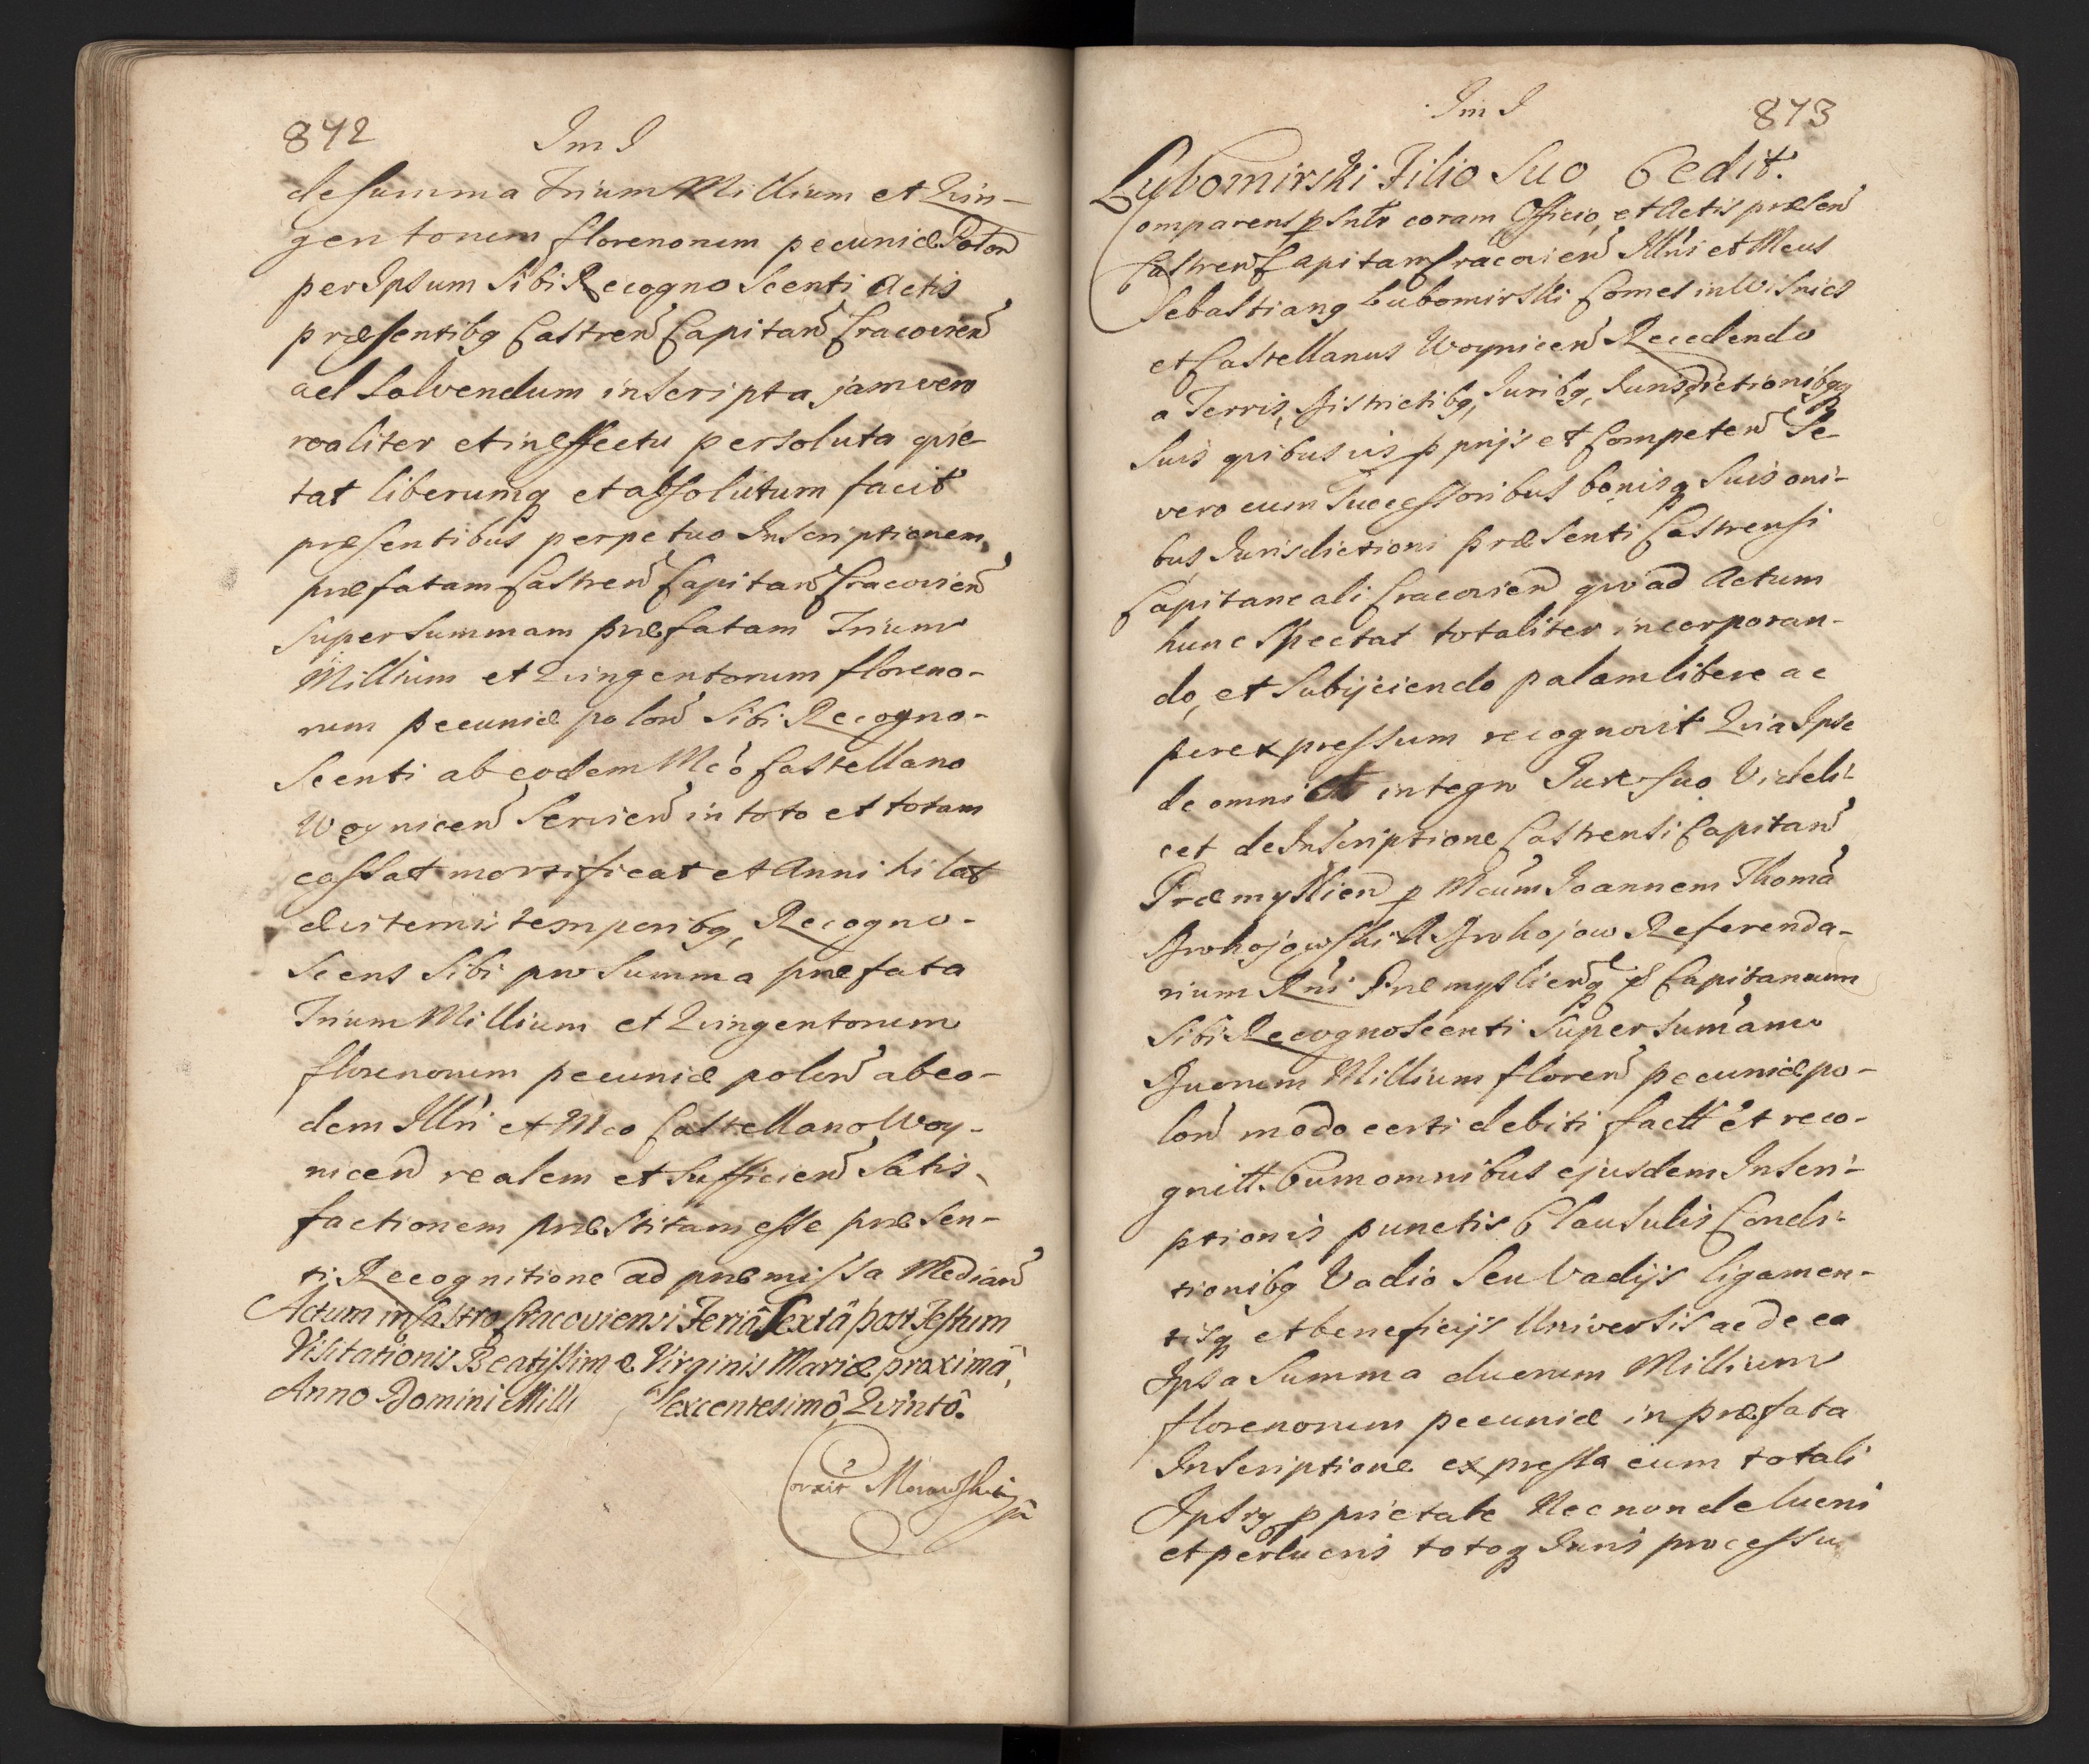 872
Im I
de summa Trium Millium et Quin-
gentorum florenorum pecuniæ Polon
per Ipsum Sibi Recognoscenti Actis
præsentibg Castren Capitan Cracovien
ad Solvendum inscripta jam vero
realiter et in effectu persoluta quie-
tat liberumq et absolutum facit
præsentibus perpetuo Inscriptionem
præfatam Castren Capitan Cracovien
super summam præfatam Trium
Millium et Quingentorum floreno-
rum pecuniæ polon Sibi Recogno-
Scenti ab eodem Mco Castellano
Woynicen Servien in toto et totam
cassat mortificat et Annihilat
æviternis temporibg, Recogno-
Scens Sibi pro Summa præfata
Trium Millium et Quingentorum
florenorum pecuniæ polon ab eo-
dem Illri et Mco Castellano Woy-
nicen realem et Sufficien Satis-
factionem præstitam esse præsen-
ti Recognitione ad præmissa Median
Actum in Castro Cracoviensi Feriâ Sextâ post Festum
Visitationis Beatissimæ Virginis Mariæ proximâ,
Anno Domini Mill Sexcentesimô Quintô.
Corxit Morawski
Im I
873
Lubomirski Filio Suo Cedit.
Comparens psnlr coram Officio, et Actis præsen
Castren Capitan Cracovien Illris et Mcus
Sebastiang Lubomirski Comes in Wisnicz
et Castellanus Woynicen Recedendo
a Terris, Districtibg, Juribg, Jurisdictionibgq
Suis quibusvis pprijs et Competen Se
vero cum Successoribus bonisq Suis oni-
bus Jurisdictioni præsenti Castrensi
Capitaneali Cracovien quo ad Actum
hunc Spectat totaliter incorporan-
do, et Subijciendo palam libere ac
per expressum recognovit Quia Ipse
de omni et integro Jure suo Videli-
cet de Inscriptione Castrensi Capitan
Præmyslien p Mcum Joannem Thoma
Drohojowski A Drohojow Referenda-
rium Rni Præmyslienq Capitaneum
Sibi Recognoscenti Super Sumam
Duorum Millium floren pecuniæ po-
lon modo certi debiti fact et reco-
gnitt. Cum omnibus ejusdem Inscri-
ptionis punctis Clausulis Condi-
tionibg Vadio Seu Vadijs ligamen-
tisq et beneficijs Universis ac de ea
Ipsa Summa duorum Millium
florenorum pecuniæ in præfata
Inscriptione expressa cum totali
Ipsig pprietate Nec non de lucri
et perlucris totoq Juris processu